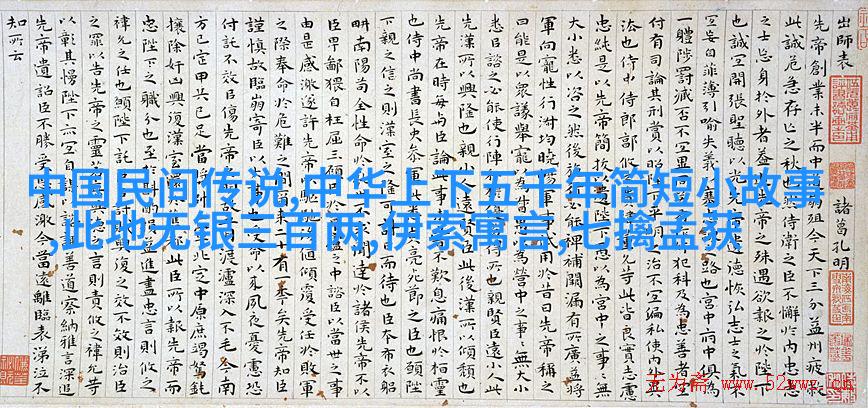 中国民间传说,中华上下五千年简短小故事
,此地无银三百两,伊索寓言,七擒孟获
出師表 諸葛孔明
先帝創業未半而中 殂今天下三分益州疲敝
此誠危急存亡之秋也 侍衛之臣不懈於內忠志
之士忘身於外者蓋 先帝之殊遇欲報之於陛下
也誠宜開張聖聽以光先 遺德恢弘志士之氣不
宜妄自菲薄引喻失義 路也宮中府中俱為
一體陟罰臧否不宜異 犯科及為忠善者宜
付有司論其刑賞以昭 平明之治不宜偏私使內外異
法也侍中侍郎郭攸之 等此皆良實志慮
忠純是以先帝簡拔以遺陛下愚以為宮中之事事無
大小悉以咨之然後施 裨補闕漏有所廣益將
軍向寵性行淑均曉暢軍事試用於昔日先帝稱之
曰能是以眾議舉寵為督 以為營中之事事無大小
悉以諮之必能使行陣 得所也親賢臣遠小人此
先漢所以興隆也親小人遠賢臣此後漢所以傾頹也
先帝在時每與臣論此事 歎息痛恨於桓靈
也侍中尚書長史參軍此悉 亮死節之臣也願陛
下親之信之則漢室之隆可計 而待也臣本布衣躬
耕南陽苟全性命於 達於諸侯先帝不以
臣卑鄙猥自枉屈三顧臣 之中諮臣以當世之事
由是感激遂許先帝 值傾覆受任於敗軍
之際奉命於危難之間 來二十有一年矣先帝知臣
謹慎故臨崩寄臣以 受命以來夙夜憂 恐
付託不效 傷先帝 渡瀘深入不毛今南
方已定甲兵已足當 北定中原庶竭駑鈍
攘除奸凶興復漢室 此臣所以報先帝而
忠陛下之職分也至 進盡忠言則攸之
禕允之任也願陛下託臣 興復之效不效則治臣
之罪以告先帝之靈 之言則責攸之禕允等
以彰其慢陛下亦宜自 善道察納雅言深追
先帝遺詔臣不勝受 感激今當遠離臨表涕泣不
知所云
无为斋 www.52wwz.cn